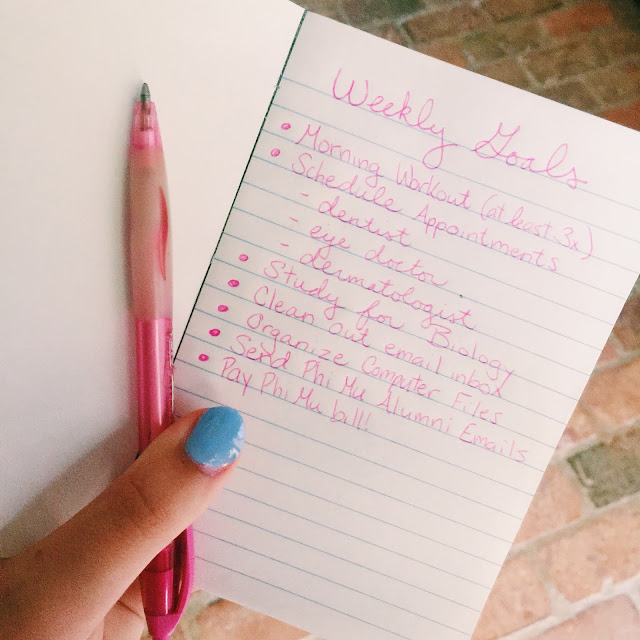 Weekly Goals
• Morning Workout (at least 3x)
• Schedule Appointments
- dentist
- eye doctor
- dermatologist
• Study for Biology
• Clean Out email inbox
• Organize Computer Files
• Send Phi Mu Alumni Emails
• Pay Phi Mu bill!